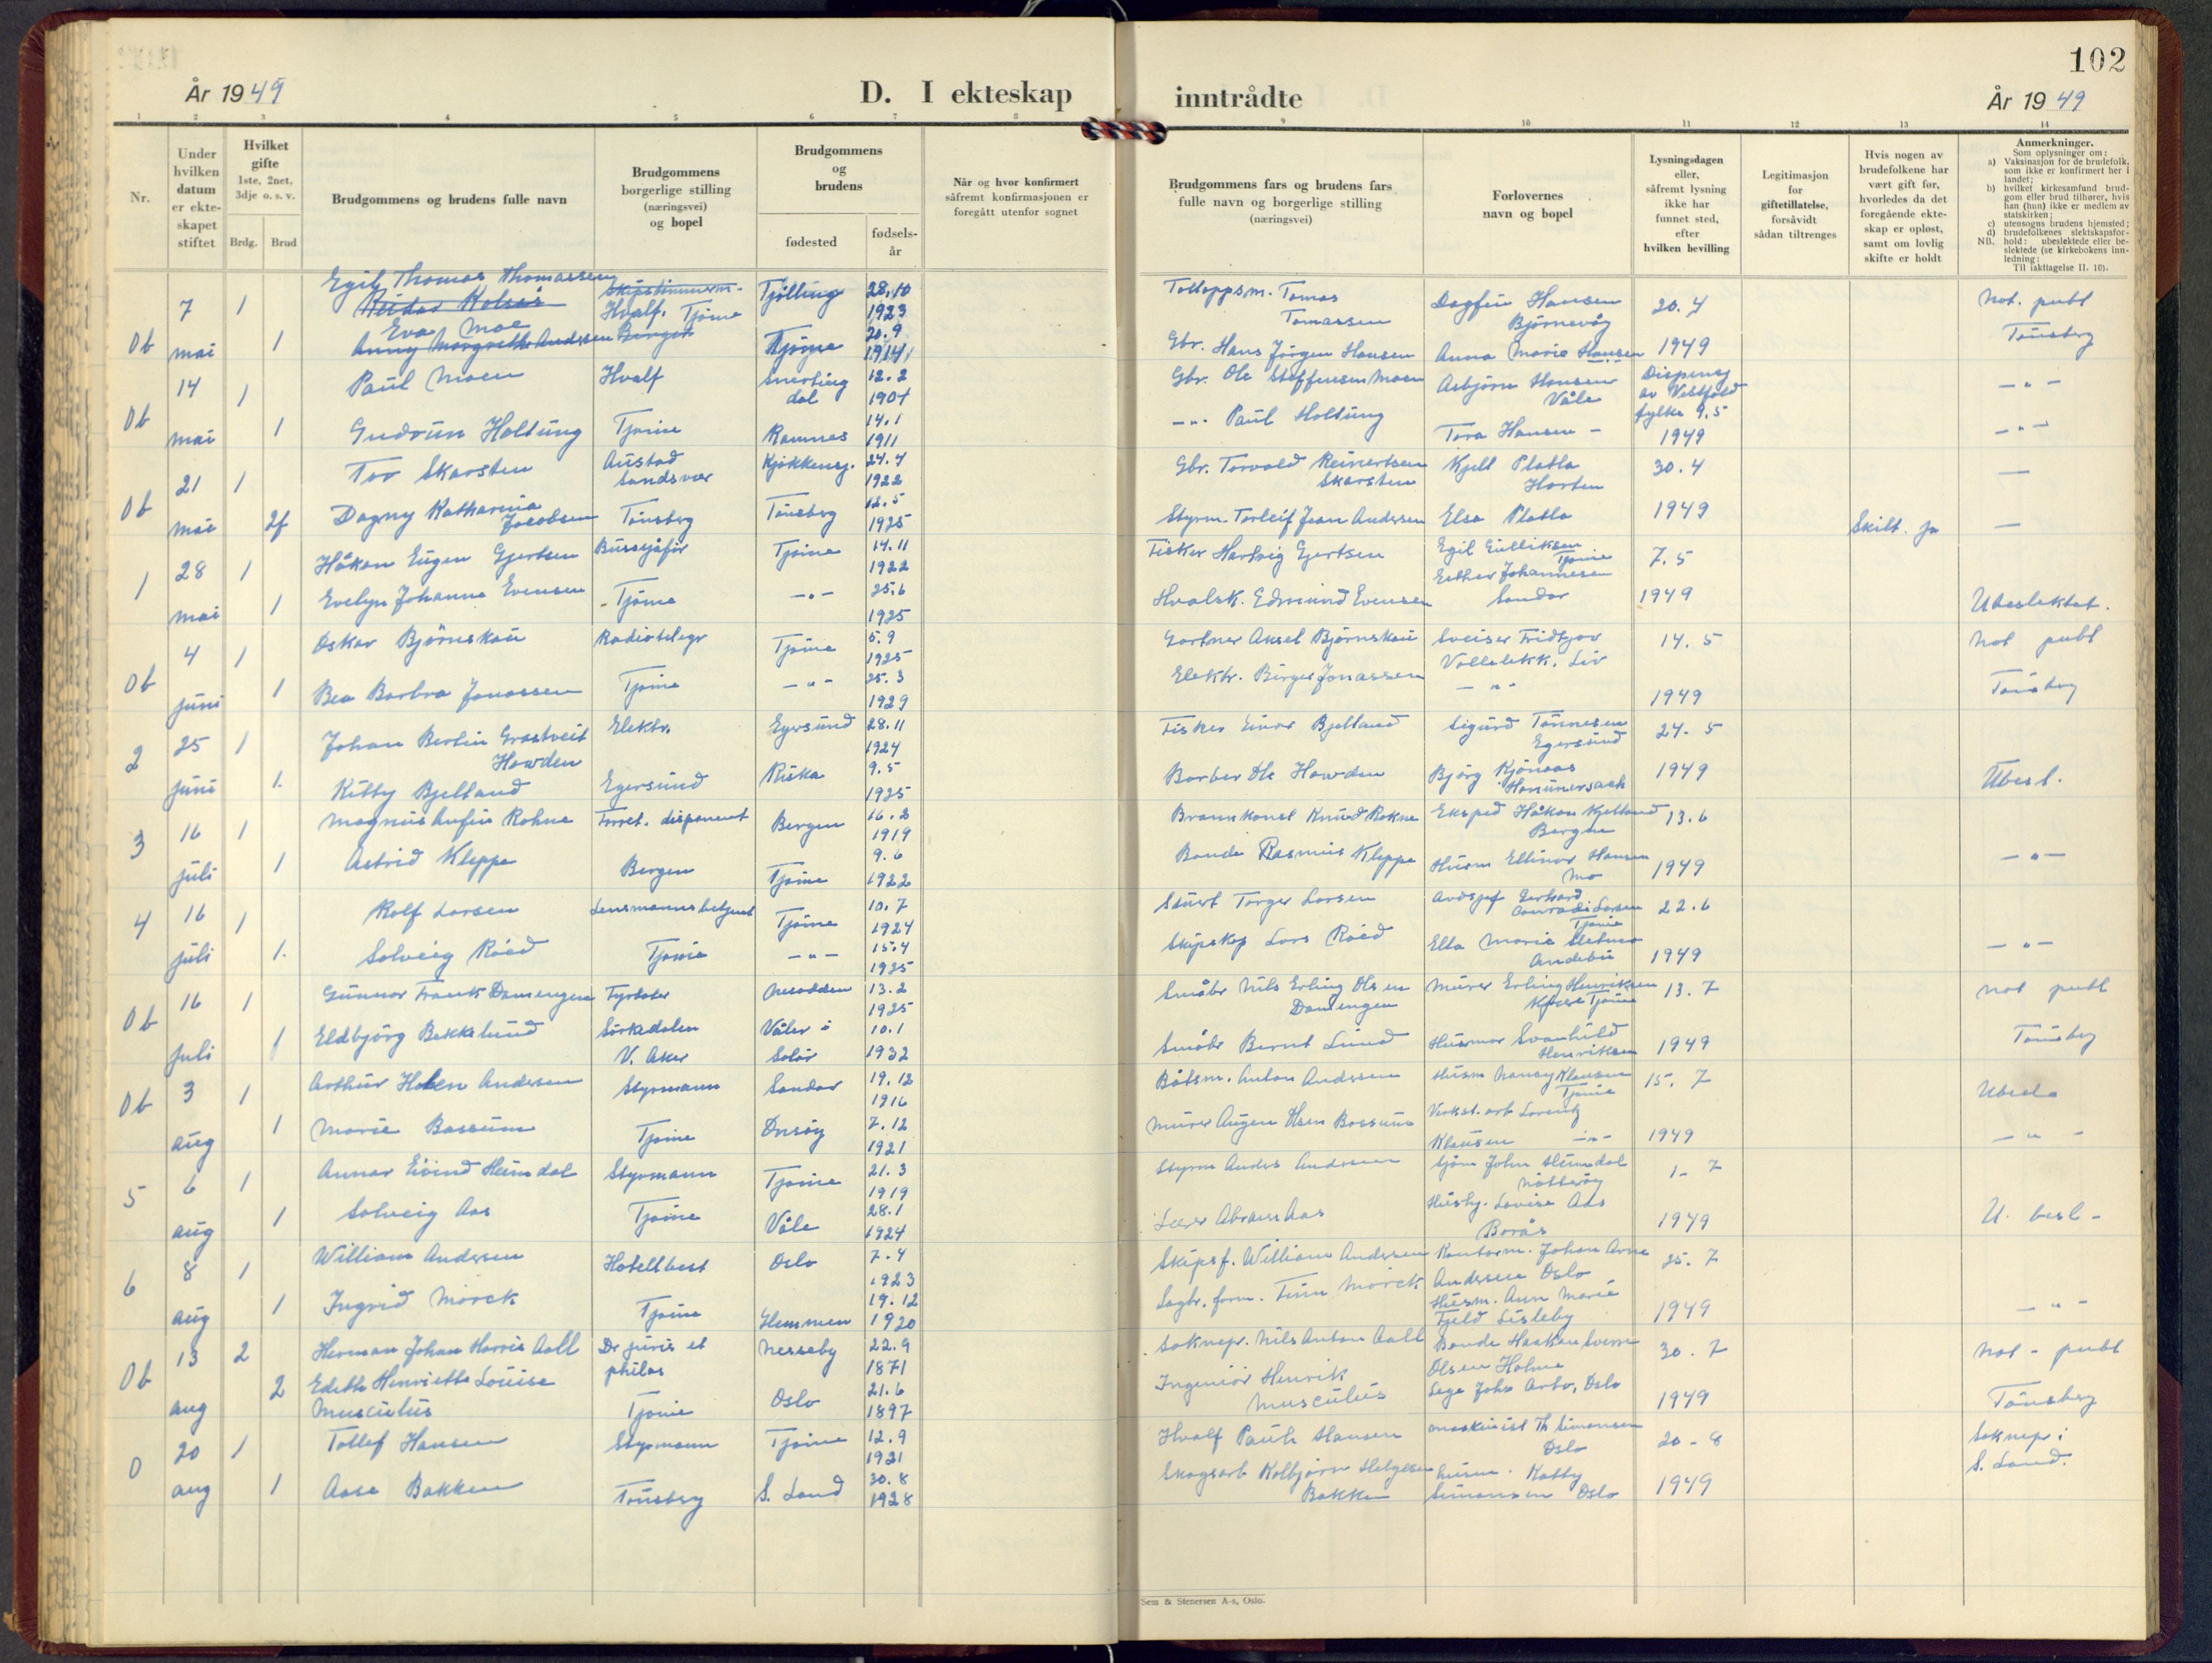 102
År 1949
D. I ekteskap
inntrådte
År 1949
1 2 3 4 5 6 7 8 9 10 11 12 13 14
Nr.
Under hvilken datum er ekte-skapet stiftet
Hvilket gifte 1ste, 2net, 3dje o. s. v.
Brdg. Brud
Brudgommens og brudens fulle navn
Brudgommens borgerlige stilling (næringsvei) og bopel
Brudgommens og brudens
fødested
fødsels-år
Når og hvor konfirmert såfremt konfirmasjonen er foregått utenfor sognet
Brudgommens fars og brudens fars fulle navn og borgerlige stilling (næringsvei)
Forlovernes navn og bopel
Lysningsdagen eller, såfremt lysning ikke har funnet sted, efter hvilken bevilling
Legitimasjon for giftetillatelse, forsåvidt sådan tiltrenges
Hvis nogen av brudefolkene har vært gift før, hvorledes da det foregående ekte-skap er opløst, samt om lovlig skifte er holdt
Anmerkninger.
Som oplysninger om:
a) Vaksinasjon for de brudefolk, som ikke er konfirmert her i landet;
b) hvilket kirkesamfund brud-gom eller brud tilhører, hvis han (hun) ikke er medlem av statskirken;
c) utensogns brudens hjemsted;
d) brudefolkenes slektskapsfor-hold: ubeslektede eller be-slektede (se kirkebokens inn-ledning:
NB. Til iakttagelse II. 10).
Egil Thomas Thomassen
7 1 Reidar Holsås Skipstømmerm. Tjølling 28.10 Tolloppsm. Tomas Dagfin Hansen 20.4 Not. publ
Eva Moe Hvalf. Tjøme 1923 Tomassen Bjørnevåg
Ob mai 1 Anny Margrethe Andersen Bergen Tjøme 20.9 1914 Gbr. Hans Jørgen Hansen Anna Marie Hansen 1949 Tønsberg
14 1 Paul Moen Hvalf 12.2 1904 Gbr. Ole Steffensen Moen Asbjørn Hansen Våle Dispens av Vestfold fylke 9.5 -"-
Ob mai 1 Gudrun Holtung Tjøme Ramnes 14.1 1911 -"- Paul Holtung Tora Hansen - 1949 -"-
21 1 Tor Skarsten Austad Sandsvær Kjøkkensj. 24.4 1922 Gbr. Torvald Reinertsen Skarsten Kjell Platla Horten 30.4 —
Ob mai 2f Dagny Katharina Jacobsen Tønsberg Tønsberg 12.5 1925 Styrm. Torleif Jean Andersen Elsa Platla 1949 Skilt. ja —
1 28 1 Håkon Eugen Gjertsen Bussjåfør Tjøme 14.11 1922 Fisker Hartvig Gjertsen Egil Gulliksen Tjøme 7.5
mai 1 Evelyn Johanne Evensen - Tjøme -"- 25.6 1925 Hvalsk. Edmund Evensen Esther Johannesen Sandar 1949 Ubeslektet.
4 1 Oskar Bjørnskau Radiotelegr Tjøme 5.9 1925 Gartner Aksel Bjørnskau Sveiser Fridtjov 14.5 Not publ
Ob juni 1 Bea Barbra Jonassen Tjøme -"- 25.3 1929 Elektr. Birger Jonassen Vollelekk. Liv -"- 1949 Tønsberg
2 25 1 Johan Bertin Grastveit Howden Elektr. Egersund 28.11 1924 Fisker Einar Bjelland Sigurd Tønnesen Egersund 24.5
juni 1. Kitty Bjelland Egersund Riska 9.5 1925 Barber Ole Howden Bjørg Kjønaas 1949 Ubesl.
3 16 1 Magnus Anfin Rohne Forret. disponent Bergen 16.2 1919 Brannkonst Knud Rokne Eksped Håkon Kjelland Bergen 13.6
juli 1 Astrid Kleppe Bergen Tjøme 9.6 1922 Bonde Rasmus Kleppe Husm Ellinor Hansen Mo 1949 -"-
4 16 1 Rolf Larsen Lensmannsbetjent Tjøme 10.7 1924 Stuert Torger Larsen Gerhard Conradi Larsen Tjøme 22.6
juli 1. Solveig Røed Tjøme -"- 15.4 1925 Skipskap Lars Røed Ella Marie Andebu 1949 -"-
Ob 16 1 Gunnar Frank Damengen Fyrbøter Nesodden 13.2 1925 Småbr Nils Erling Olsen Damengen Murer Erling Henriksen Tjøme 13.7 not publ
juli 1 Eldbjørg Bekkelund Sørkedalen V. Aker Våler i Solør 10.1 1932 Småbr Bernt Lund Husmor Svanhild Henriksen 1949 Tønsberg
Ob 3 1 Arthur Holen Andersen Styrmann Sandar 19.12 1916 Båtsm. Anton Andersen Husm Nancy Klausen Tjøme 15.7 Ubesl.
aug 1 Marie Bassum Tjøme Onsøy 7.12 1921 Murer Augen Olsen Bossum Verkst. arb Lorentz Klausen -"- 1949 -"-
5 6 1 Annar Eivind Heimdal Styrmann Tjøme 21.3 1919 Styrm Anders Andersen Sjøm John Heimdal Nøtterøy 1-7
aug 1 Solveig Aas Tjøme Våle 28.1 1924 Lærer Abraham Aas Husby. Lovise Aas Borås 1949 U. besl-
6 8 1 William Andersen Hotellbest Oslo 7.4 1923 Skipsf. William Andersen Kontorm. Johan Arne Andersen Oslo 25.7
aug 1 Ingrid Mørck Tjøme Hemmen 19.12 1920 Sagbr. form. Finn Mørck Husm. Ann Marie Fjeld Lisleby 1949 -"-
Ob 13 2 Herman Johan Harris Aall Dr juris et philos Nesseby 22.9 1871 Soknepr. Nils Anton Aall Bonde Haakon Sverre Olsen Holme 30.7 Not-publ
aug 2 Edith Henriette Louise Musculus Tjøme Oslo 21.6 1897 Ingeniør Henrik Musculus Lege John Arbo, Oslo 1949 Tønsberg
0 20 1 Tollef Hansen Styrmann Tjøme 12.9 1921 Hvalf Paul Hansen Maskinist Th Simonsen Oslo 20-8 Soknepr i S. Land.
aug 1 Aase Bakken Tønsberg S. Land 30.8 1928 Skogsarb Kolbjørn Helgesen Bakken husm. Kathy Simonsen Oslo 1949
Sem & Stenersen A-s, Oslo.